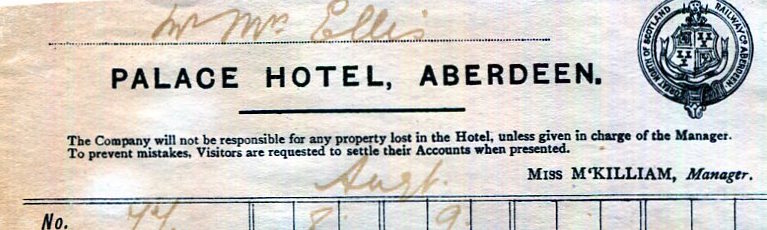 Mr Mrs Ellis
PALACE HOTEL, ABERDEEN.
GREAT NORTH OF SCOTLAND RAILWAY Co ABERDEEN
The Company will not be responsible for any property lost in the Hotel, unless given in charge of the Manager.
To prevent mistakes, Visitors are requested to settle their Accounts when presented.
MISS M'KILLIAM, Manager.
Augt.
No. 77 8 9